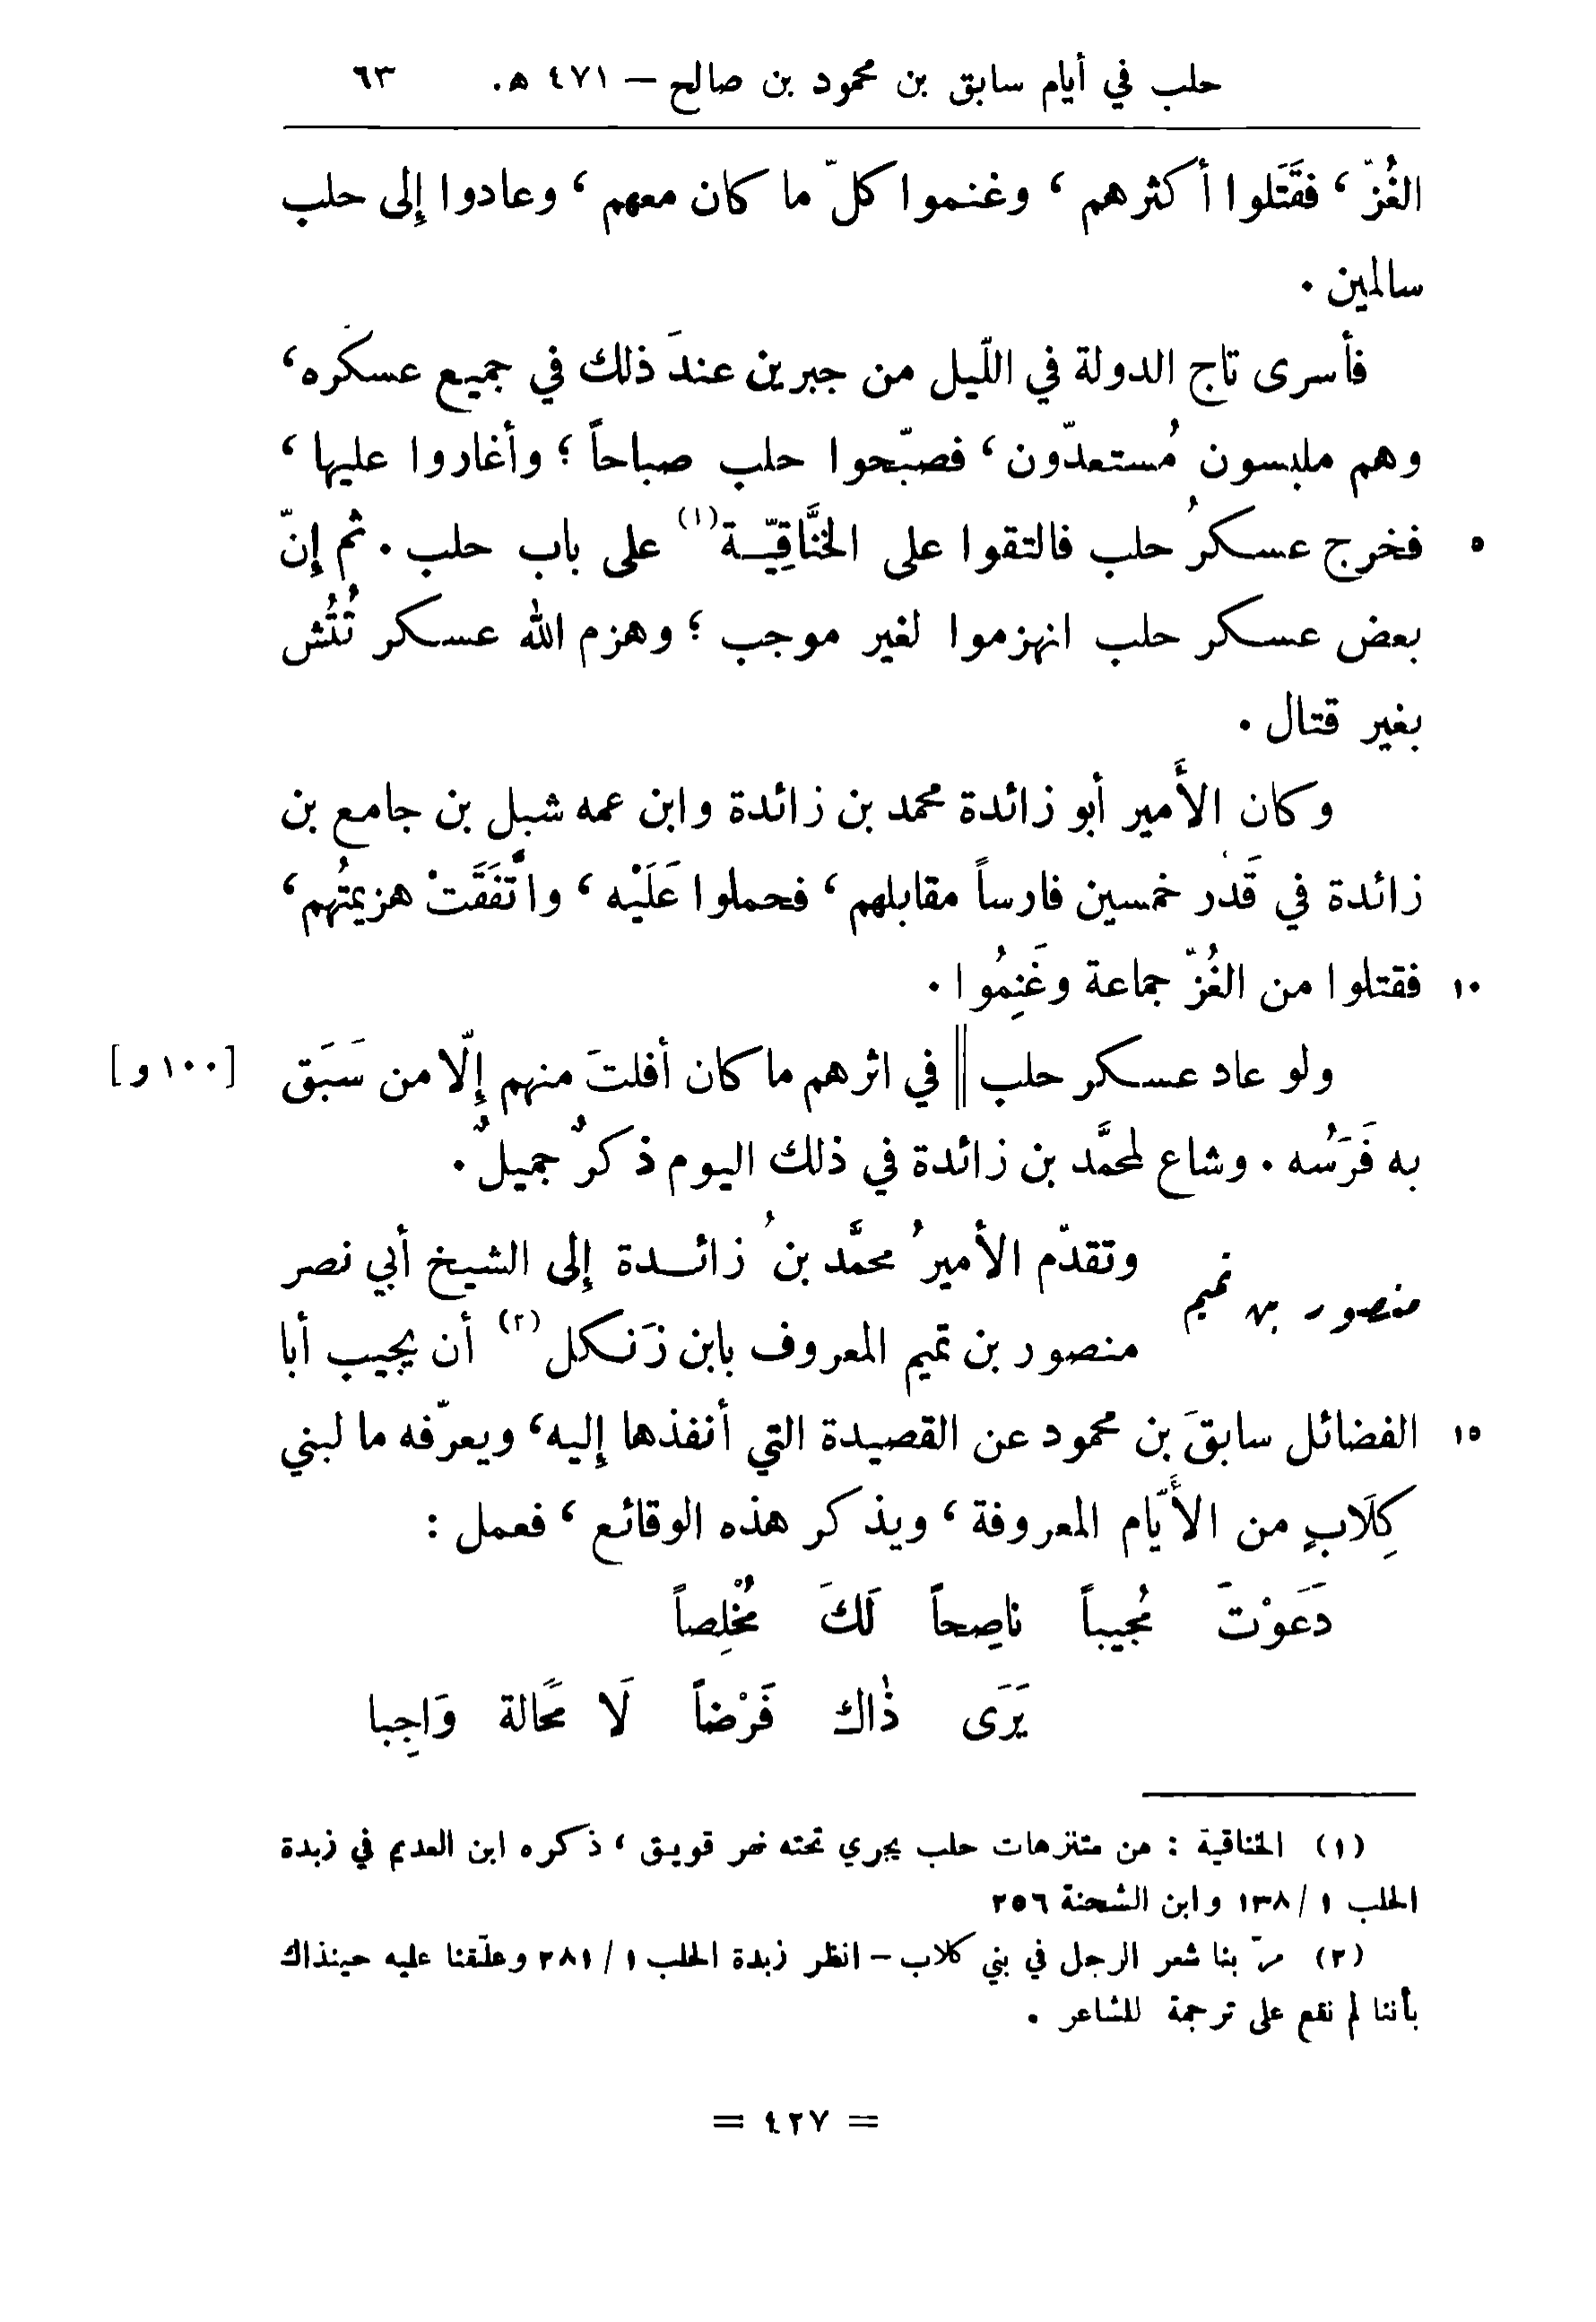 حلب في أيام سابق بن محمود بن صالح – ٤٧١ هـ. ٦٣
الغُزّ، فقَتَلوا أكثرهم، وغنموا كلّ ما كان معهم، وعادوا إلى حلب
سالمين.
فأسرى تاج الدولة في اللّيل من جبرين عندَ ذلك في جميع عسكَره،
وهم ملبسون مُستعدّون، فصبّحوا حلب صباحاً؛ وأغاروا عليها،
٥ فخرج عسكرُ حلب فالتقوا على الخنَّاقِيّة(١) على باب حلب. ثم إنّ
بعض عسكر حلب انهزموا لغير موجب؛ وهزم الله عسكر تُتُش
بغير قتال.
وكان الأَمير أبو زائدة محمد بن زائدة وابن عمه شبل بن جامع بن
زائدة في قَدْر خمسين فارساً مقابلهم، فحملوا عَلَيْه، واتَّفَقَتْ هزيمتُهم،
١٠ فقتلوا من الغُزّ جماعة وغَنِمُوا.
ولو عاد عسكر حلب || في اثرهم ما كان أفلتَ منهم إلّا من سَبَق [١٠٠ و]
به فَرَسُه. وشاع لمحمَّد بن زائدة في ذلك اليوم ذكرٌ جميلٌ.
منصور بن تميم
وتقدّم الأميرُ محمَّد بنُ زائدة إلى الشيخ أبي نصر
منصور بن تميم المعروف بابن زَنكل(٢) أن يجيب أبا
١٥ الفضائل سابقَ بن محمود عن القصيدة التي أنفذها إليه، ويعرّفه ما لبني
كِلَابٍ من الأَيّام المعروفة، ويذكر هذه الوقائع، فعمل:
دَعَوْتَ مُجيباً ناصِحاً لَكَ مُخْلِصاً
يَرَى ذُاك فَرْضاً لَا مَحَالة وَاجِبا
(١) الخناقية: من متنزهات حلب يجري تحته نهر قويق، ذكره ابن العديم في زبدة
الحلب ١/ ١٣٨ وابن الشحنة ٢٥٦
(٢) مرّ بنا شعر الرجل في بني كلاب – انظر زبدة الحلب ١/ ٢٨١ وعلّقنا عليه حينذاك
بأننا لم نقع على ترجمة للشاعر.
= ٤٢٧ =